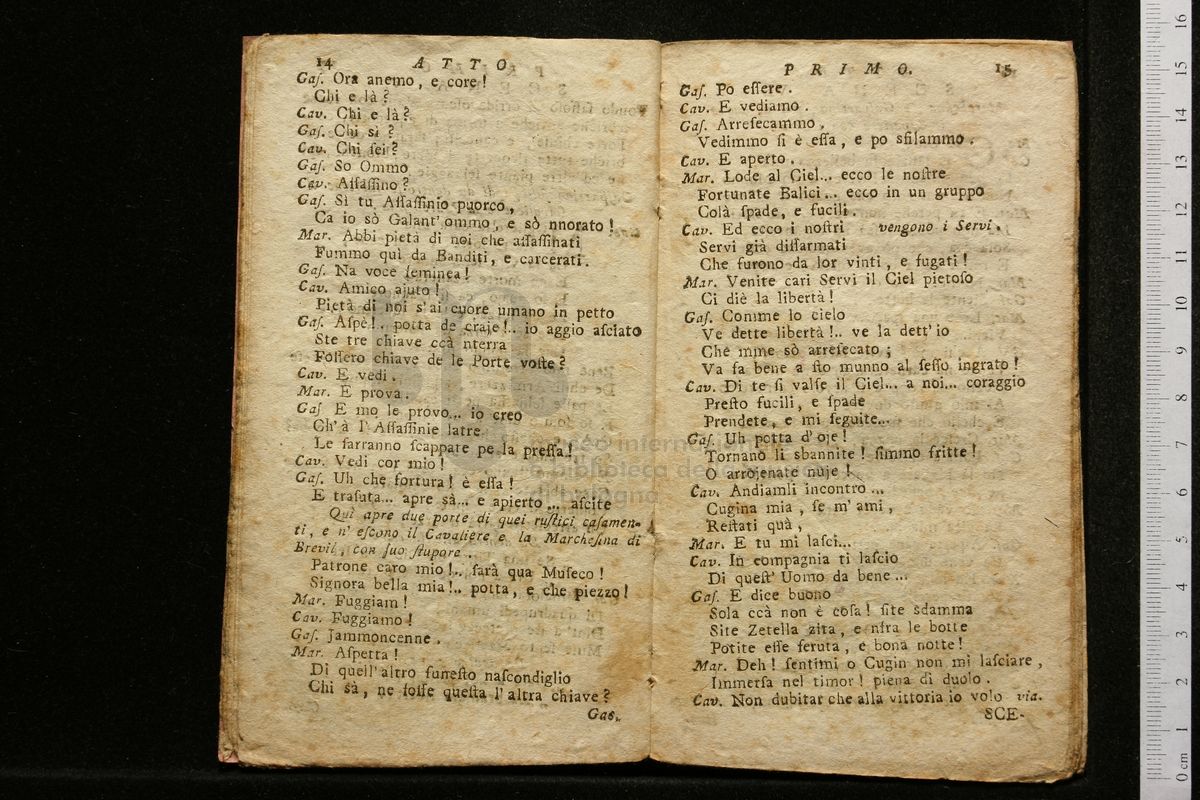 14 ATTO
Gaſ. Ora anemo, e core!
Chi e là?
Cav. Chi e là?
Gaſ. Chi si?
Cav. Chi ſei?
Gaſ. So Ommo
Cav. Aſſaſſino?
Gaſ. Sì tu Aſſaſſinio puorco,
Ca io sò Galant' ommo, e sò nnorato!
Mar. Abbi pietà di noi che aſſaſſinati
Fummo quì da Banditi, e carcerati.
Gaſ. Na voce feminea!
Cav. Amico ajuto!
Pietà di noi s'ai cuore umano in petto
Gaſ. Aſpè!.. potta de craje!.. io aggio aſciato
Ste tre chiave ccà nterra
Foſſero chiave de le Porte voſte?
Cav. E vedi.
Mar. E prova.
Gaſ E mo le provo... io creo
Ch'à l'Aſſaſſinie latre
Le farranno ſcappate pe la preſſa!
Cav. Vedi cor mio!
Gaſ. Uh che fortura! è eſſa!
E traſuta... apre sà... e apierto... aſcite
Quì apre due porte di quei ruſtici caſamen-
ti, e n' eſcono il Cavaliere e la Marcheſina di
Brevil, con ſuo ſtupore.
Patrone caro mio!.. ſarà qua Muſeco!
Signora bella mia!.. potta, e che piezzo!
Mar. Fuggiam!
Cav. Fuggiamo!
Gaſ. Jammoncenne.
Mar. Aſpetta!
Di quell'altro funeſto naſcondiglio
Chi sà, ne foſſe queſta l'altra chiave?
Gas.
PRIMO. 15
Gaſ. Po eſſere.
Cav. E vediamo.
Gaſ. Arreſecammo.
Vedimmo ſi è eſſa, e po sfilammo.
Cav. E aperto.
Mar. Lode al Ciel... ecco le noſtre
Fortunate Balici... ecco in un gruppo
Colà ſpade, e fucili.
Cav. Ed ecco i noſtri vengono i Servi.
Servi già diſſarmati
Che furono da lor vinti, e fugati!
Mar. Venite cari Servi il Ciel pietoſo
Ci diè la libertà!
Gaſ. Comme lo cielo
Ve dette libertà!.. ve la dett'io
Chè mme sò arreſecato;
Va fa bene a ſto munno al ſeſſo ingrato!
Cav. Di te ſi valſe il Ciel... a noi... coraggio
Preſto fucili, e ſpade
Prendete, e mi ſeguite...
Gaſ. Uh potta d'oje!
Tornano li sbannite! ſimmo fritte!
O arrojenate nuje!
Cav. Andiamli incontro...
Cugina mia, ſe m'ami,
Reſtati quà,
Mar. E tu mi laſci...
Cav. In compagnia ti laſcio
Di queſt' Uomo da bene...
Gaſ. E dice buono
Sola ccà non è coſa! ſite sdamma
Site Zetella zita, e nfra le botte
Potite eſſe feruta, e bona notte!
Mar. Deh! ſentimi o Cugin non mi laſciare,
Immerſa nel timor! piena di duolo.
Cav. Non dubitar che alla vittoria io volo via.
SCE-
museo internazionale
e biblioteca della musica
di bologna
0 cm 1 2 3 4 5 6 7 8 9 10 11 12 13 14 15 16